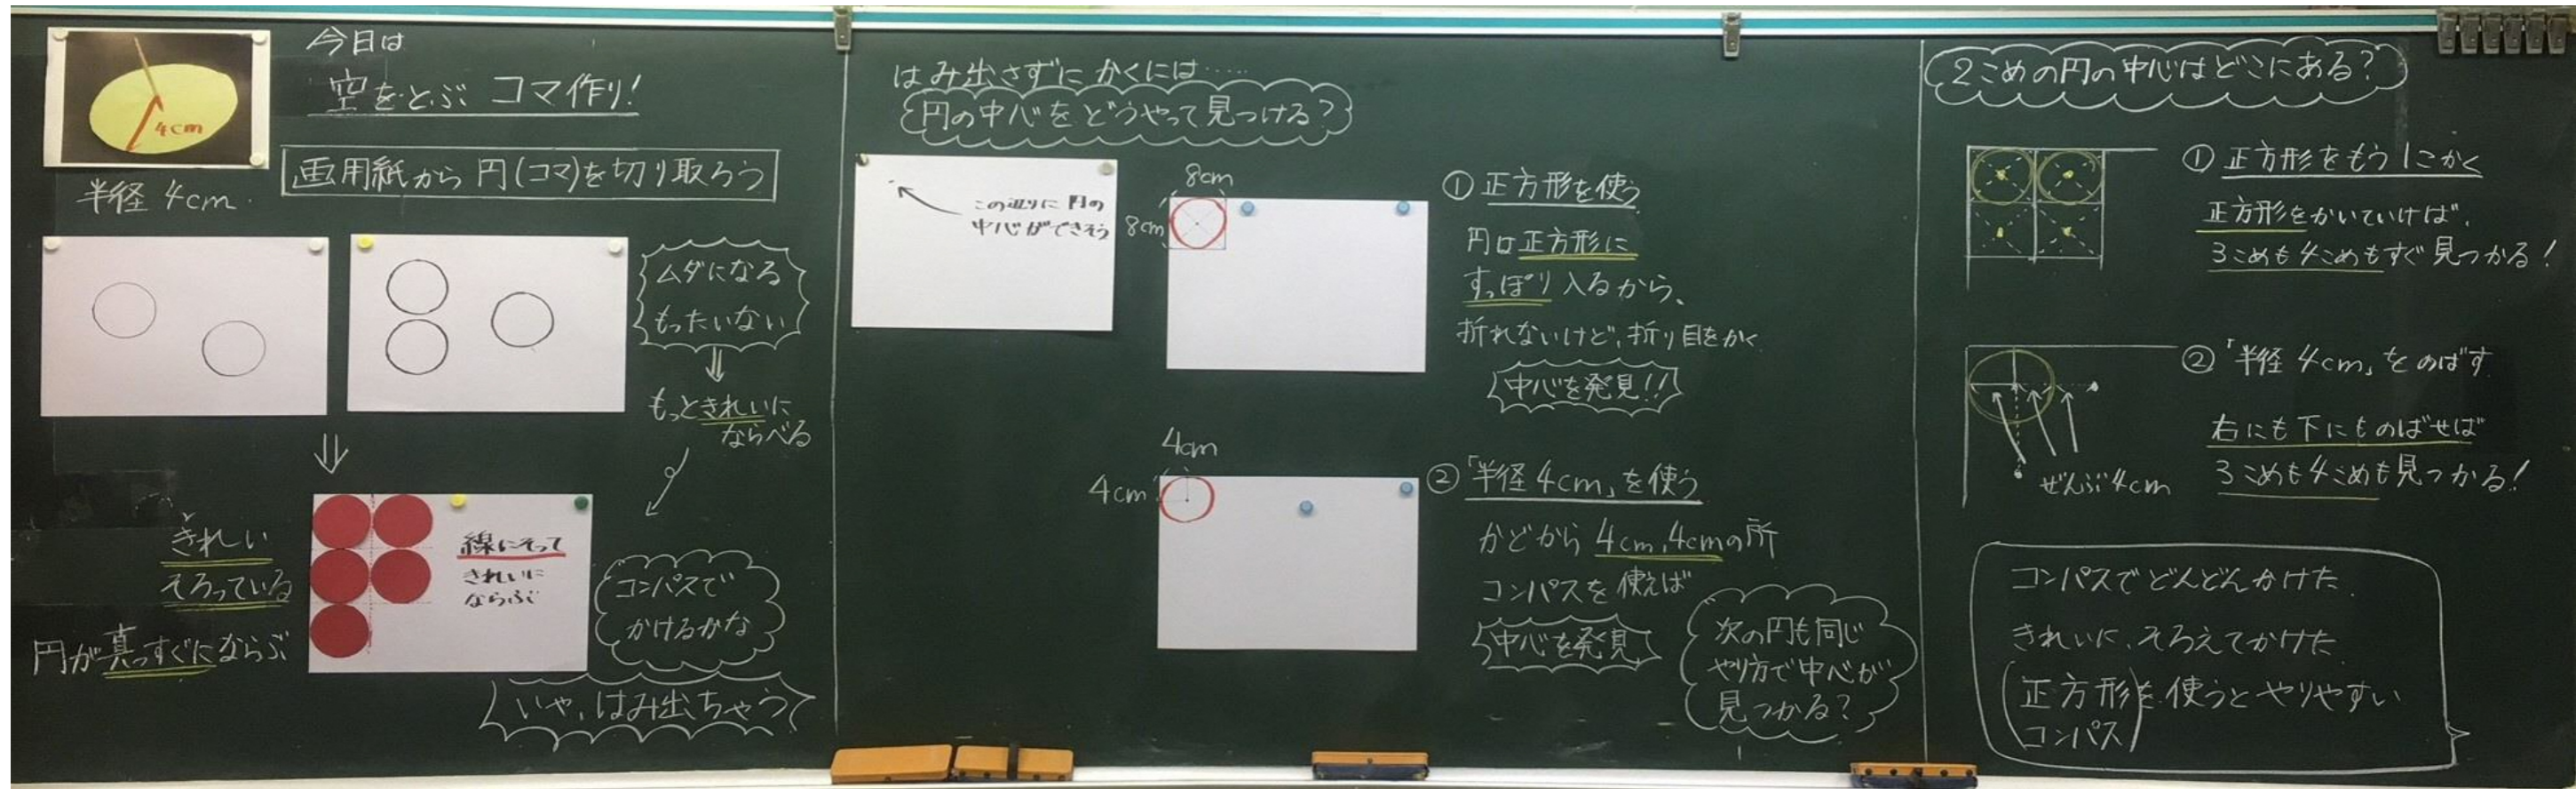 今日は
空をとぶ コマ作り!
4cm
半径 4cm.
画用紙から 円(コマ)を切り取ろう
ムダになる
もったいない
もっときれいに
ならべる
きれい
そろっている
円が真っすぐにならぶ
線にそって
きれいに
ならぶ
コンパスで
かけるかな
いや、はみ出ちゃう
はみ出さずに かくには……
円の中心をどうやって見つける?
この辺りに 円の
中心ができそう
8cm
8cm
① 正方形を使う
円は正方形に
すっぽり入るから、
折れないけど、折り目をかく
中心を発見!!
4cm
4cm
②「半径4cm」を使う
かどから 4cm,4cmの所
コンパスを使えば
中心を発見
次の円も同じ
やり方で中心が
見つかる?
2こめの円の中心はどこにある?
① 正方形をもう1こかく
正方形をかいていけば、
3こめも4こめもすぐ見つかる!
②「半径 4cm」をのばす
右にも下にものばせば
3こめも4こめも見つかる!
ぜんぶ4cm
コンパスでどんどんかけた.
きれいに、そろえてかけた
(正方形
コンパス)を使うとやりやすい